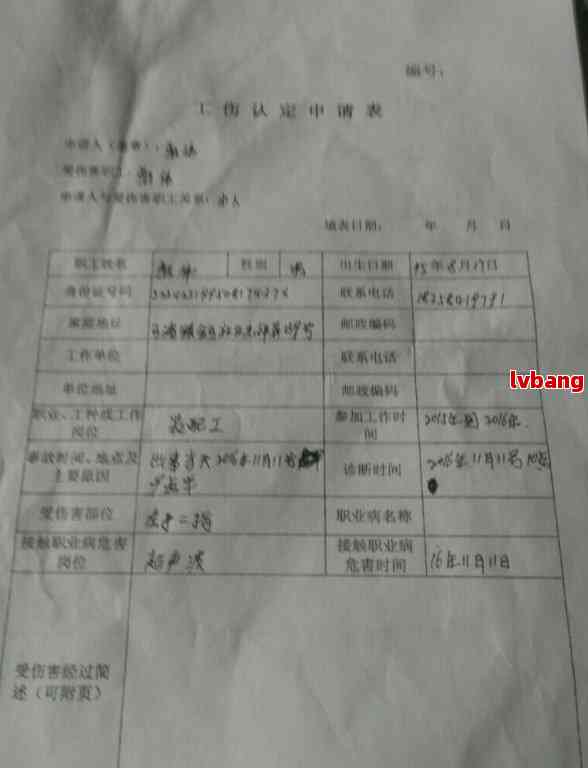 编号：
工伤认定申请表
申请人（盖章）：
受伤害职工：
申请人与受伤害职工关系：本人
填表日期： 年 月 日
职工姓名 性别 男 出生日期 95年8月17日
身份证号码 联系电话
家庭地址 邮政编码
工作单位 联系电话
单位地址 邮政编码
lvbang
职业、工种或工作岗位 装配工 参加工作时间 2015年到2016年.
事故时间、地点及主要原因 出事当天2016年11月11号 诊断时间 2016年11月11号
受伤害部位 左手二指 职业病名称
接触职业病危害岗位 超声波 接触职业病危害时间 16年11月11日
受伤害经过简述（可附页）